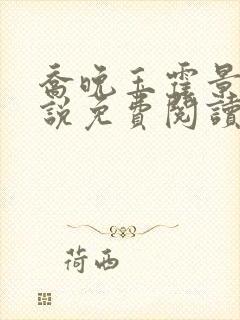 喬晚玉霆景
說免費閱讀
荷西